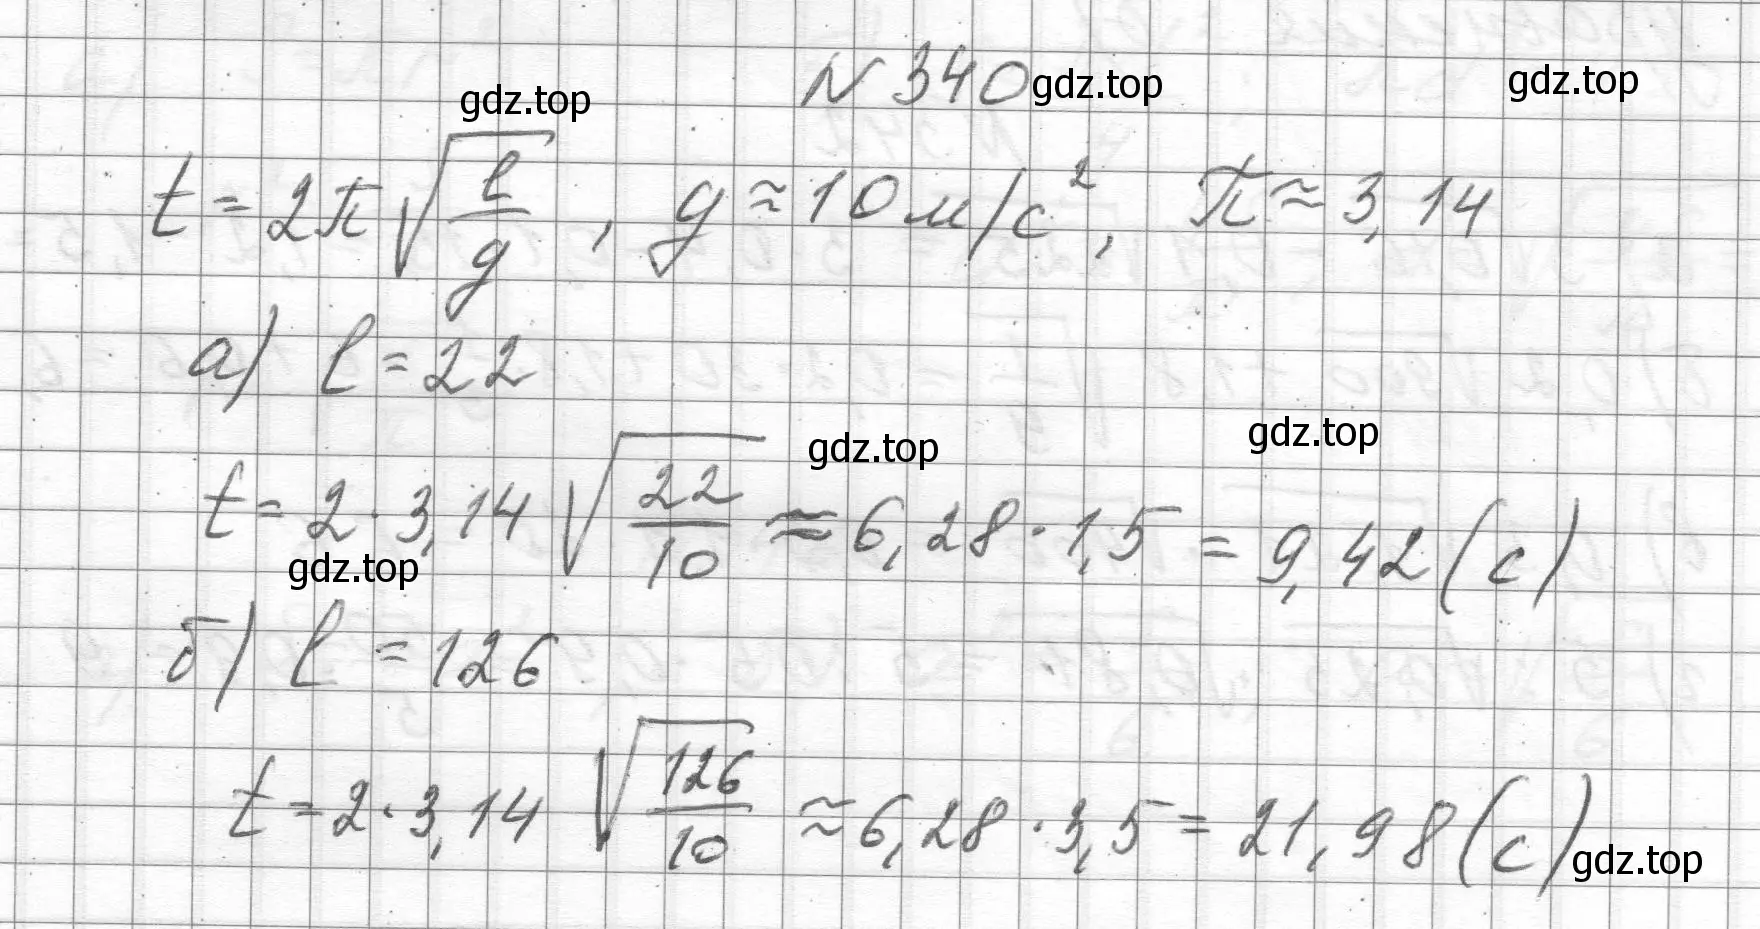 N 340 gdz.top gdz.top
gdz.top
t = 2π √(l/g), g ≈ 10 м/с², π ≈ 3,14
а) l = 22
gdz.top gdz.top
t = 2 · 3,14 √(22/10) ≈ 6,28 · 1,5 = 9,42 (с)
gdz.top
б) l = 126
t = 2 · 3,14 √(126/10) ≈ 6,28 · 3,5 = 21,98 (с)
gdz.top